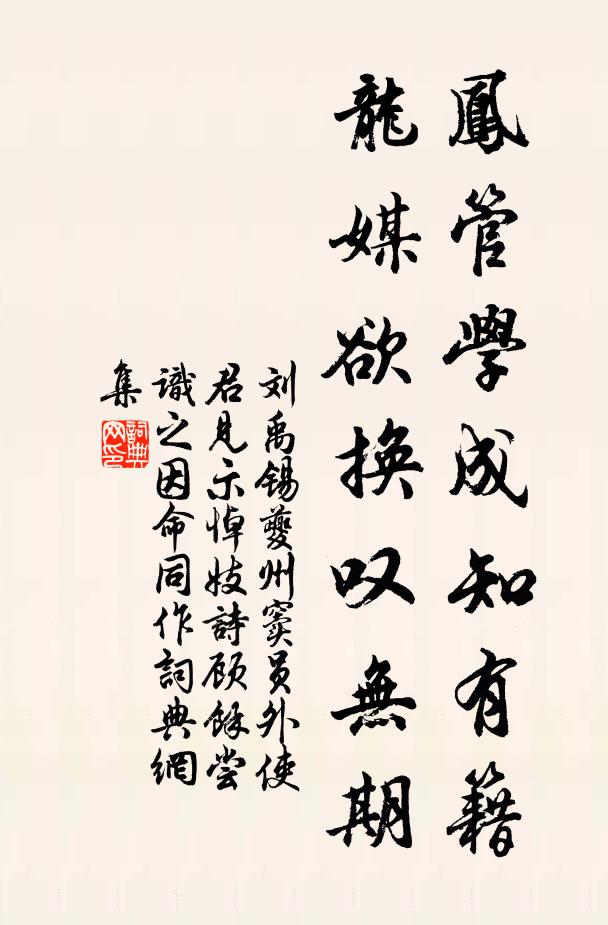 鳳管學成知有籍
龍媒欲換叹無期
刘禹锡夔州窦员外使
君見示悼妓詩顾餘尝
識之因命同作詞典網
集
詞典
网印